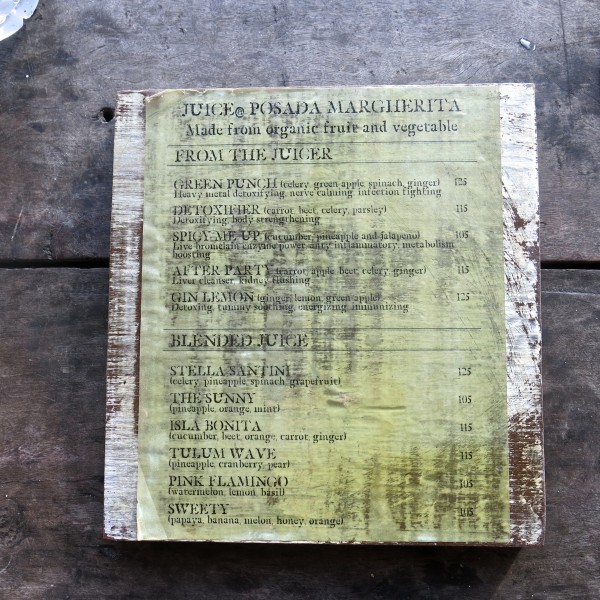 JUICE@ POSADA MARGHERITA
Made from organic fruit and vegetable
FROM THE JUICER
GREEN PUNCH (celery, green apple, spinach, ginger) 125
Heavy metal detoxifying, nerve calming, infection fighting
DETOXIFIER (carrot, beet, celery, parsley) 115
Detoxifying, body strengthening
SPICY ME UP (cucumber, pineapple and jalapeno) 105
Live bromelain enzyme power entry inflammatory, metabolism
boosting
AFTER PARTY (carrot, apple, beet, celery, ginger) 115
Liver cleanser, kidney flushing
GIN LEMON (ginger, lemon, green apple) 125
Detoxing, tummy soothing, energizing, immunizing
BLENDED JUICE
STELLA SANTINI 125
(celery, pineapple, spinach, grapefruit)
THE SUNNY 105
(pineapple, orange, mint)
ISLA BONITA 115
(cucumber, beet, orange, carrot, ginger)
TULUM WAVE 115
(pineapple, cranberry, pear)
PINK FLAMINGO 105
(watermelon, lemon, basil)
SWEETY 105
(papaya, banana, melon, honey, orange)